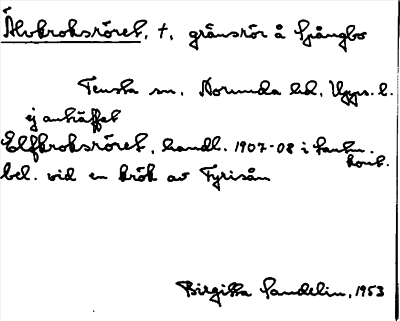 Älvkroksröret, †, gränsrör å Ljångbo
Tensta sn, Norunda hd, Upps. l.
ej anträffat
Elfkroksröret, handl. 1907-08 i lantm.
kont.
bel. vid en krök av Fyrisån
Birgitta Sandelin, 1953